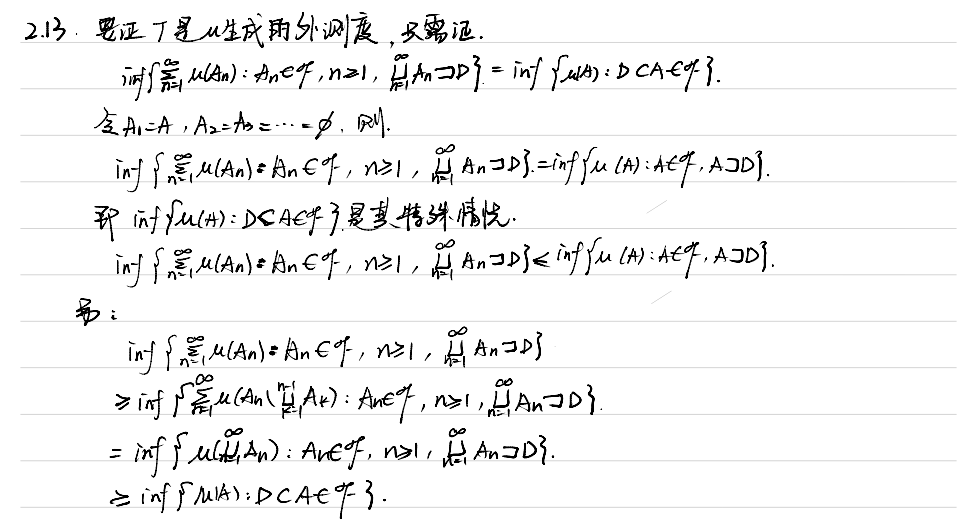 2.13. 要证 τ是μ生成的外测度, 只需证.
inf{∑_{n=1}^{∞} μ(An): An∈𝓕, n≥1, ⋃_{n=1}^{∞} An⊃D} = inf {μ(A): D⊂A∈𝓕}.
令A₁=A, A₂=A₃=⋯=∅. 则.
inf{∑_{n=1}^{∞} μ(An): An∈𝓕, n≥1, ⋃_{n=1}^{∞} An⊃D}=inf{μ(A): A∈𝓕, A⊃D}.
即 inf{μ(A): D⊂A∈𝓕}是其特殊情况.
inf{∑_{n=1}^{∞} μ(An): An∈𝓕, n≥1, ⋃_{n=1}^{∞} An⊃D}≤inf{μ(A): A∈𝓕, A⊃D}.
另:
inf{∑_{n=1}^{∞} μ(An): An∈𝓕, n≥1, ⋃_{n=1}^{∞} An⊃D}
≥inf{∑_{n=1}^{∞} μ(An\⋃_{k=1}^{n-1} Ak): An∈𝓕, n≥1, ⋃_{n=1}^{∞} An⊃D}.
= inf{μ(⋃_{n=1}^{∞} An): An∈𝓕, n≥1, ⋃_{n=1}^{∞} An⊃D}.
≥ inf{μ(A): D⊂A∈𝓕}.